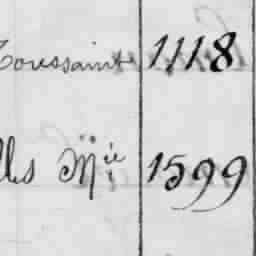 Toussaint 1118
lles Mie 1599